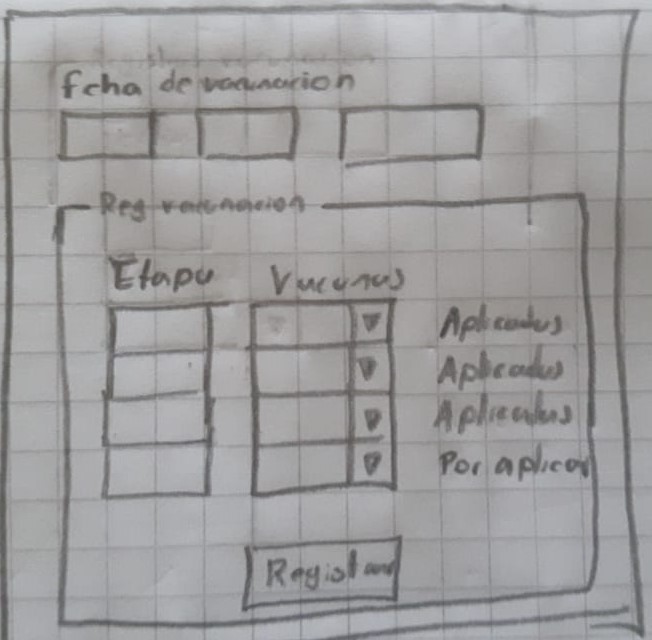 fcha de vacunacion
Reg vacunacion
Etapa Vacunas
Aplicadas
Aplicadas
Aplicadas
Por aplicar
Registrar